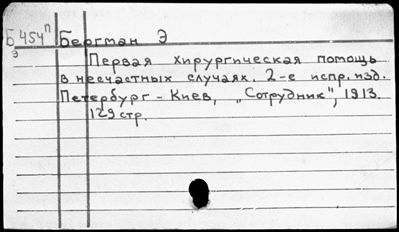 Б 454п Бергман Э
э
Первая хирургическая помощь
в несчастных случаях. 2-е испр. изд.
Петербург - Киев, „Сотрудник", 1913.
129 стр.